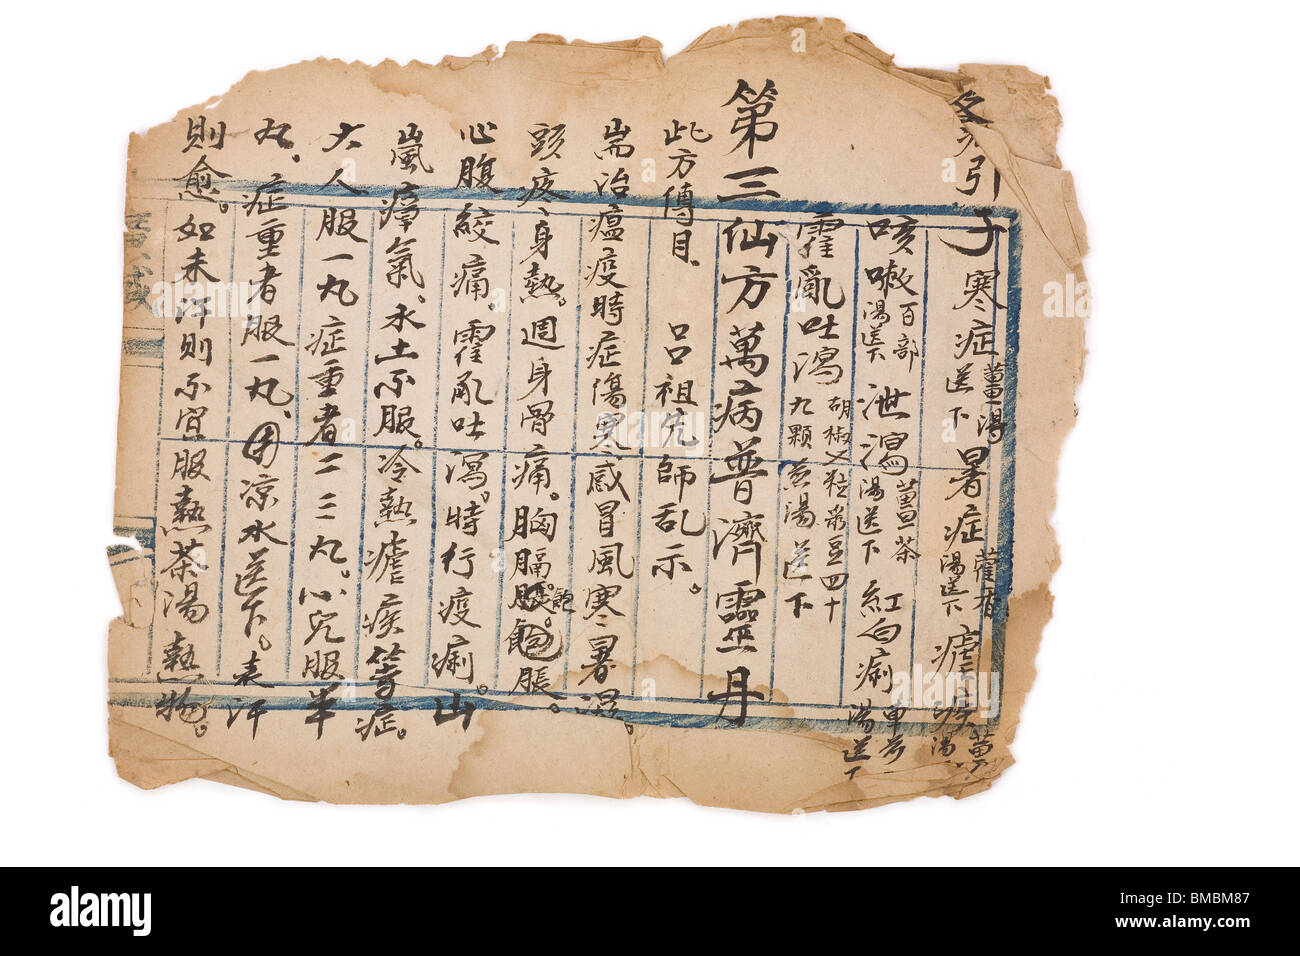 引子 寒症薑湯送下 暑症藿香湯送下
咳嗽百部湯送下 泄瀉薑茶湯送下 紅白痢甲草湯送下
霍亂吐瀉胡椒七粒菉豆四十九顆煎湯送下
第三仙方萬病普濟靈丹
此方傳自 呂祖先師乩示。
耑治瘟疫時症傷寒感冒風寒暑濕。
頭疼、身熱。週身骨痛。胸膈脹飽脹。
心腹絞痛。霍亂吐瀉。時行疫痢。山
嵐瘴氣、水土不服。冷熱瘧疾等症。
大人服一丸症重者二三丸。小兒服半
丸、症重者服一丸、用凉水送下。表汗
則愈。如未汗則不宜服熱茶湯熱物。
alamy
Image ID: BMBM87
www.alamy.com